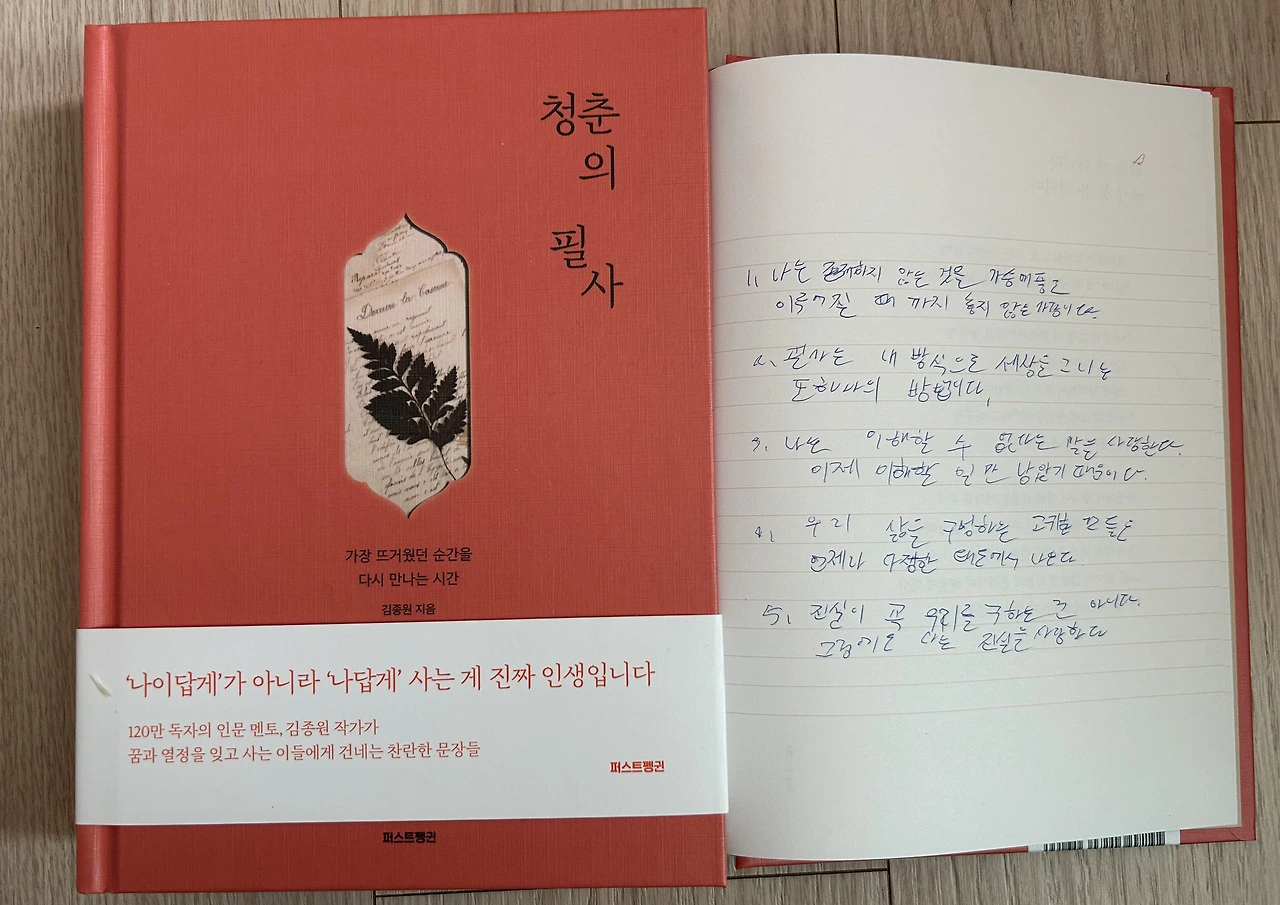 청춘
의
필
사
Derriere la Caserne
가장 뜨거웠던 순간을
다시 만나는 시간
김종원 지음
‘나이답게’가 아니라 ‘나답게’ 사는 게 진짜 인생입니다
120만 독자의 인문 멘토, 김종원 작가가
꿈과 열정을 잊고 사는 이들에게 건네는 찬란한 문장들
퍼스트펭귄
퍼스트펭귄
1. 나는 존재하지 않는 것을 가슴에 품고
이루어질 때 까지 놓지 않는 사람이다.
2. 필사는 내 방식으로 세상을 그리는
또 하나의 방법이다.
3. 나는 이해할 수 없다는 말을 사랑한다.
이제 이해할 일만 남았기 때문이다.
4. 우리 삶을 구성하는 고귀한 모든 것은
언제나 다정한 태도에서 나온다
5. 진실이 꼭 우리를 구하는 건 아니다.
그럼에도 나는 진실을 사랑한다